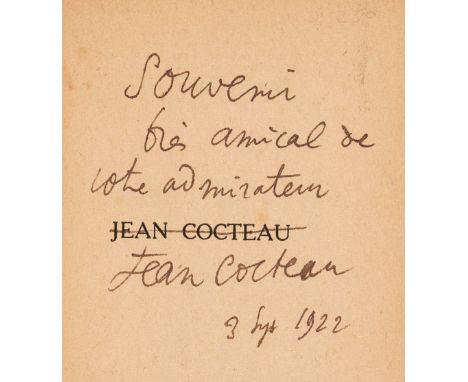 Souvenir
très amical de
votre admirateur
JEAN COCTEAU
Jean Cocteau
3 Sept 1922